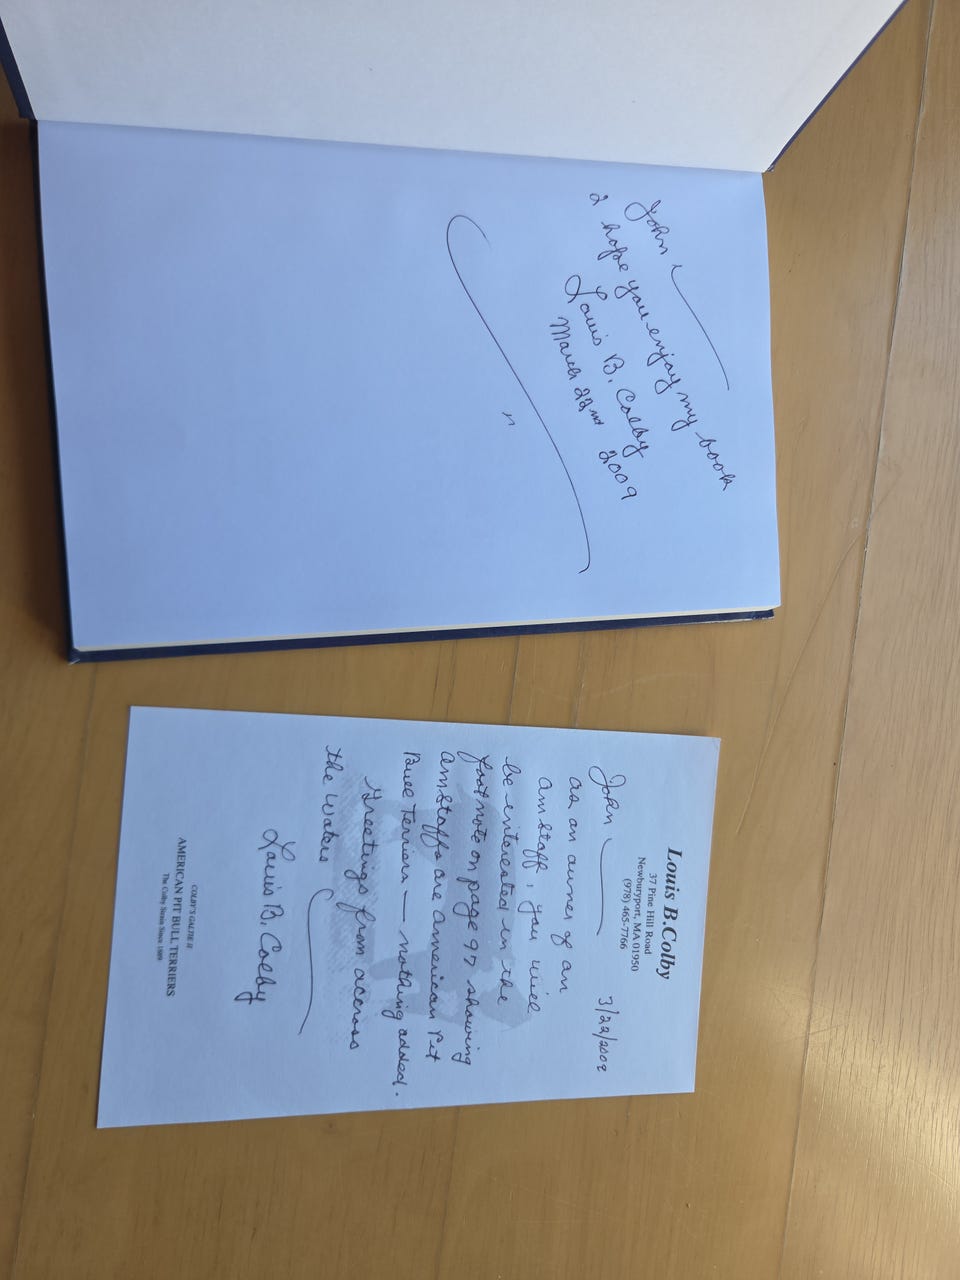 John
I hope you enjoy my book
Louis B. Colby
March 22nd 2009
Louis B. Colby
37 Pine Hill Road
Newburyport, MA 01950
(978) 465-7766
3/22/2009
John
as an owner of an
AmStaff, you will
be interested in the
footnote on page 97 showing
AmStaffs are American Pit
Bull Terriers — nothing added.
Greetings from accross
the Waters
Louis B. Colby
COLBY'S GALTIE II
AMERICAN PIT BULL TERRIERS
The Colby Strain Since 1889